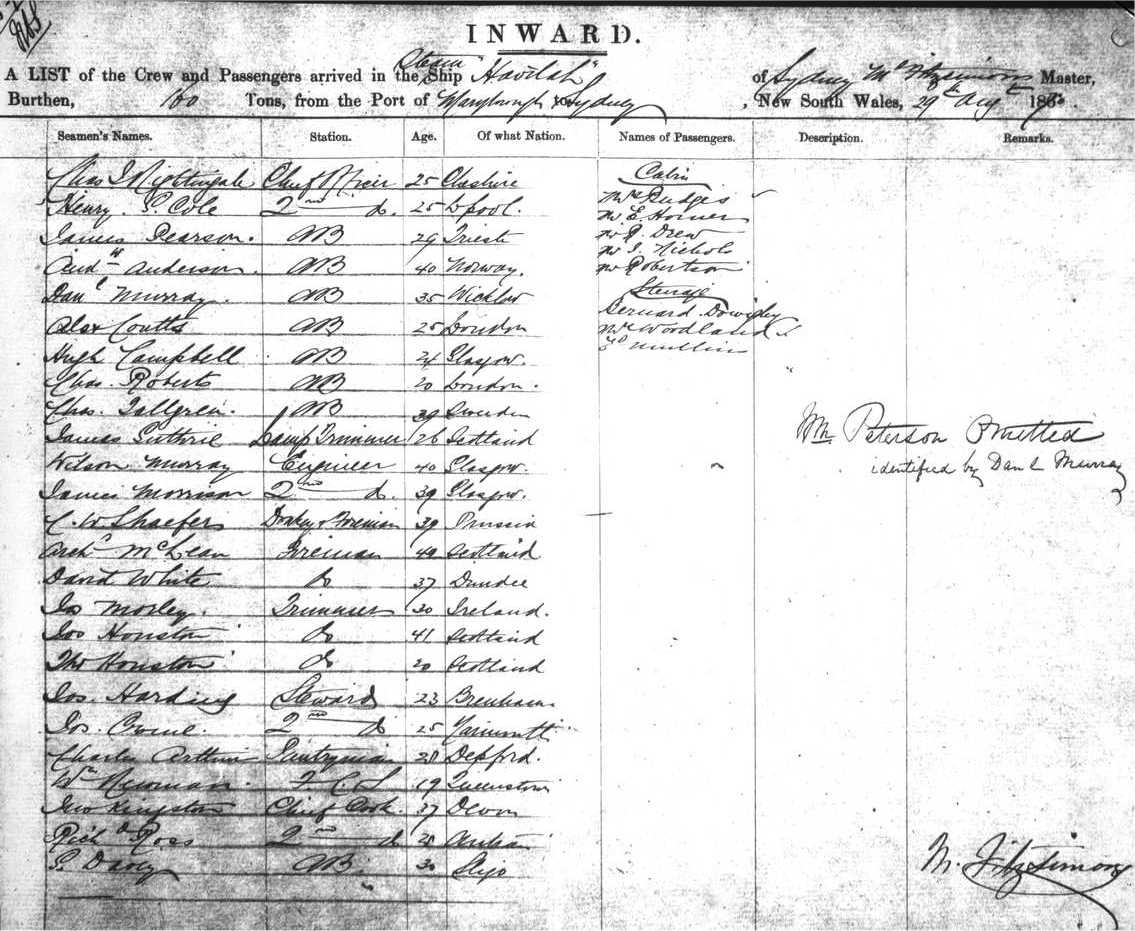 INWARD.
A LIST of the Crew and Passengers arrived in the Steam Ship "Havilah" of Sydney M Fitzsimons Master,
Burthen, 160 Tons, from the Port of Maryborough to Sydney, New South Wales, 29th Augt 186
Seamen's Names. Station. Age. Of what Nation. Names of Passengers. Description. Remarks.
Chas J Nightingale Chief Officer 25 Cheshire
Henry S. Cole 2nd do. 25 L'pool.
James Pearson. AB 29 Trieste
Andw Anderson. AB 40 Norway.
Danl Murray. AB 35 Wicklow
Alex Coutts AB 25 London
Hugh Campbell AB 24 Glasgow.
Chas. Roberts AB 20 London.
Chas. Tallgren. AB 39 Sweden
James Guthrie Lamp Trimmer 26 Scotland
Wilson Murray Engineer 40 Glasgow.
James Morrison 2nd do. 39 Glasgow.
C. W Shaefers Donkey & Fireman 39 Prussia
Archd McLean Fireman 40 Scotland
David White do 37 Dundee
Jas Morley. Trimmer 30 Ireland.
Jos Houston do 41 Scotland
Thos Houston do 20 Scotland
Jos. Harding Steward 23
Jos. 2nd do 25 Yarmouth
Charles Arthur Pantryman Depford.
Wm Newman. F. C. S 19 Queenstown
Jno Kingston Chief Cook. 37 Devon
Richd Ross 2nd do 25
P. Davey AB. 30 Sligo
Cabin
Mrs Rudges
Mr E. Horner
Mr Drew
Mr J. Nichols
Mr Robertson
Steerage
Bernard
Mrs Woodland
Ed Mullins
Wm Peterson Omitted
identified by Danl Murray
M. Fitzsimons